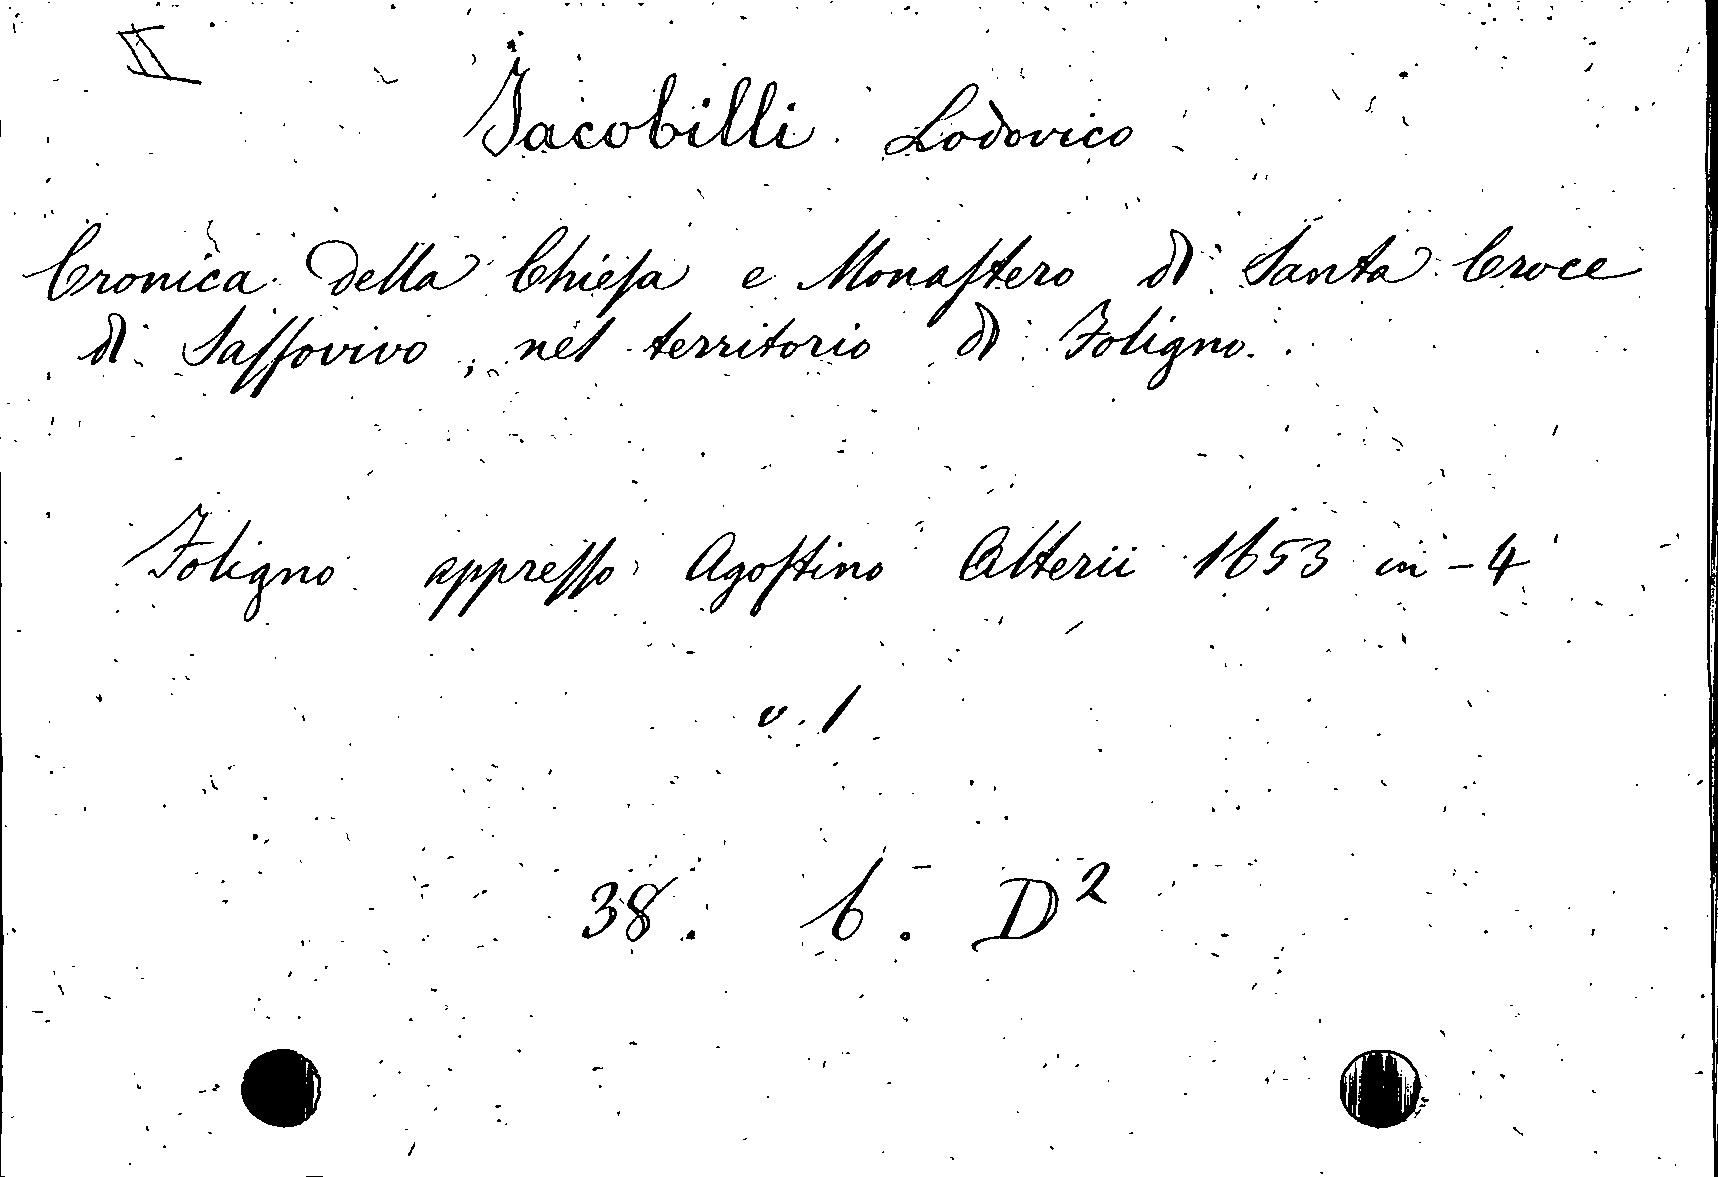 II
Jacobilli Lodovico
Cronica della Chieſa e Monaſtero di Santa Croce
di Saſſovivo, nel territorio di Foligno.
Foligno appreſſo Agoſtino Alterii 1653 in-4
v. 1
38. 6. D²